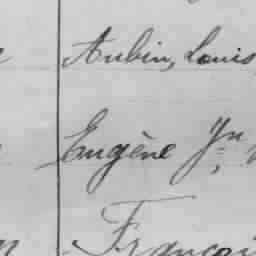 Aubin, Louis
Eugène Jn
Françoi